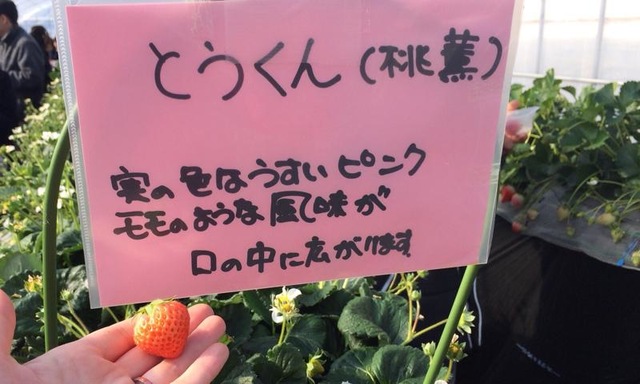 とうくん(桃薫)
実の色はうすいピンク
モモのような風味が
口の中に広がります